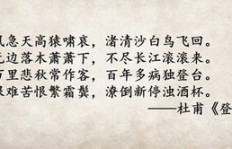 风急天高猿啸哀，渚清沙白鸟飞回。
无边落木萧萧下，不尽长江滚滚来。
万里悲秋常作客，百年多病独登台。
艰难苦恨繁霜鬓，潦倒新停浊酒杯。
——杜甫《登